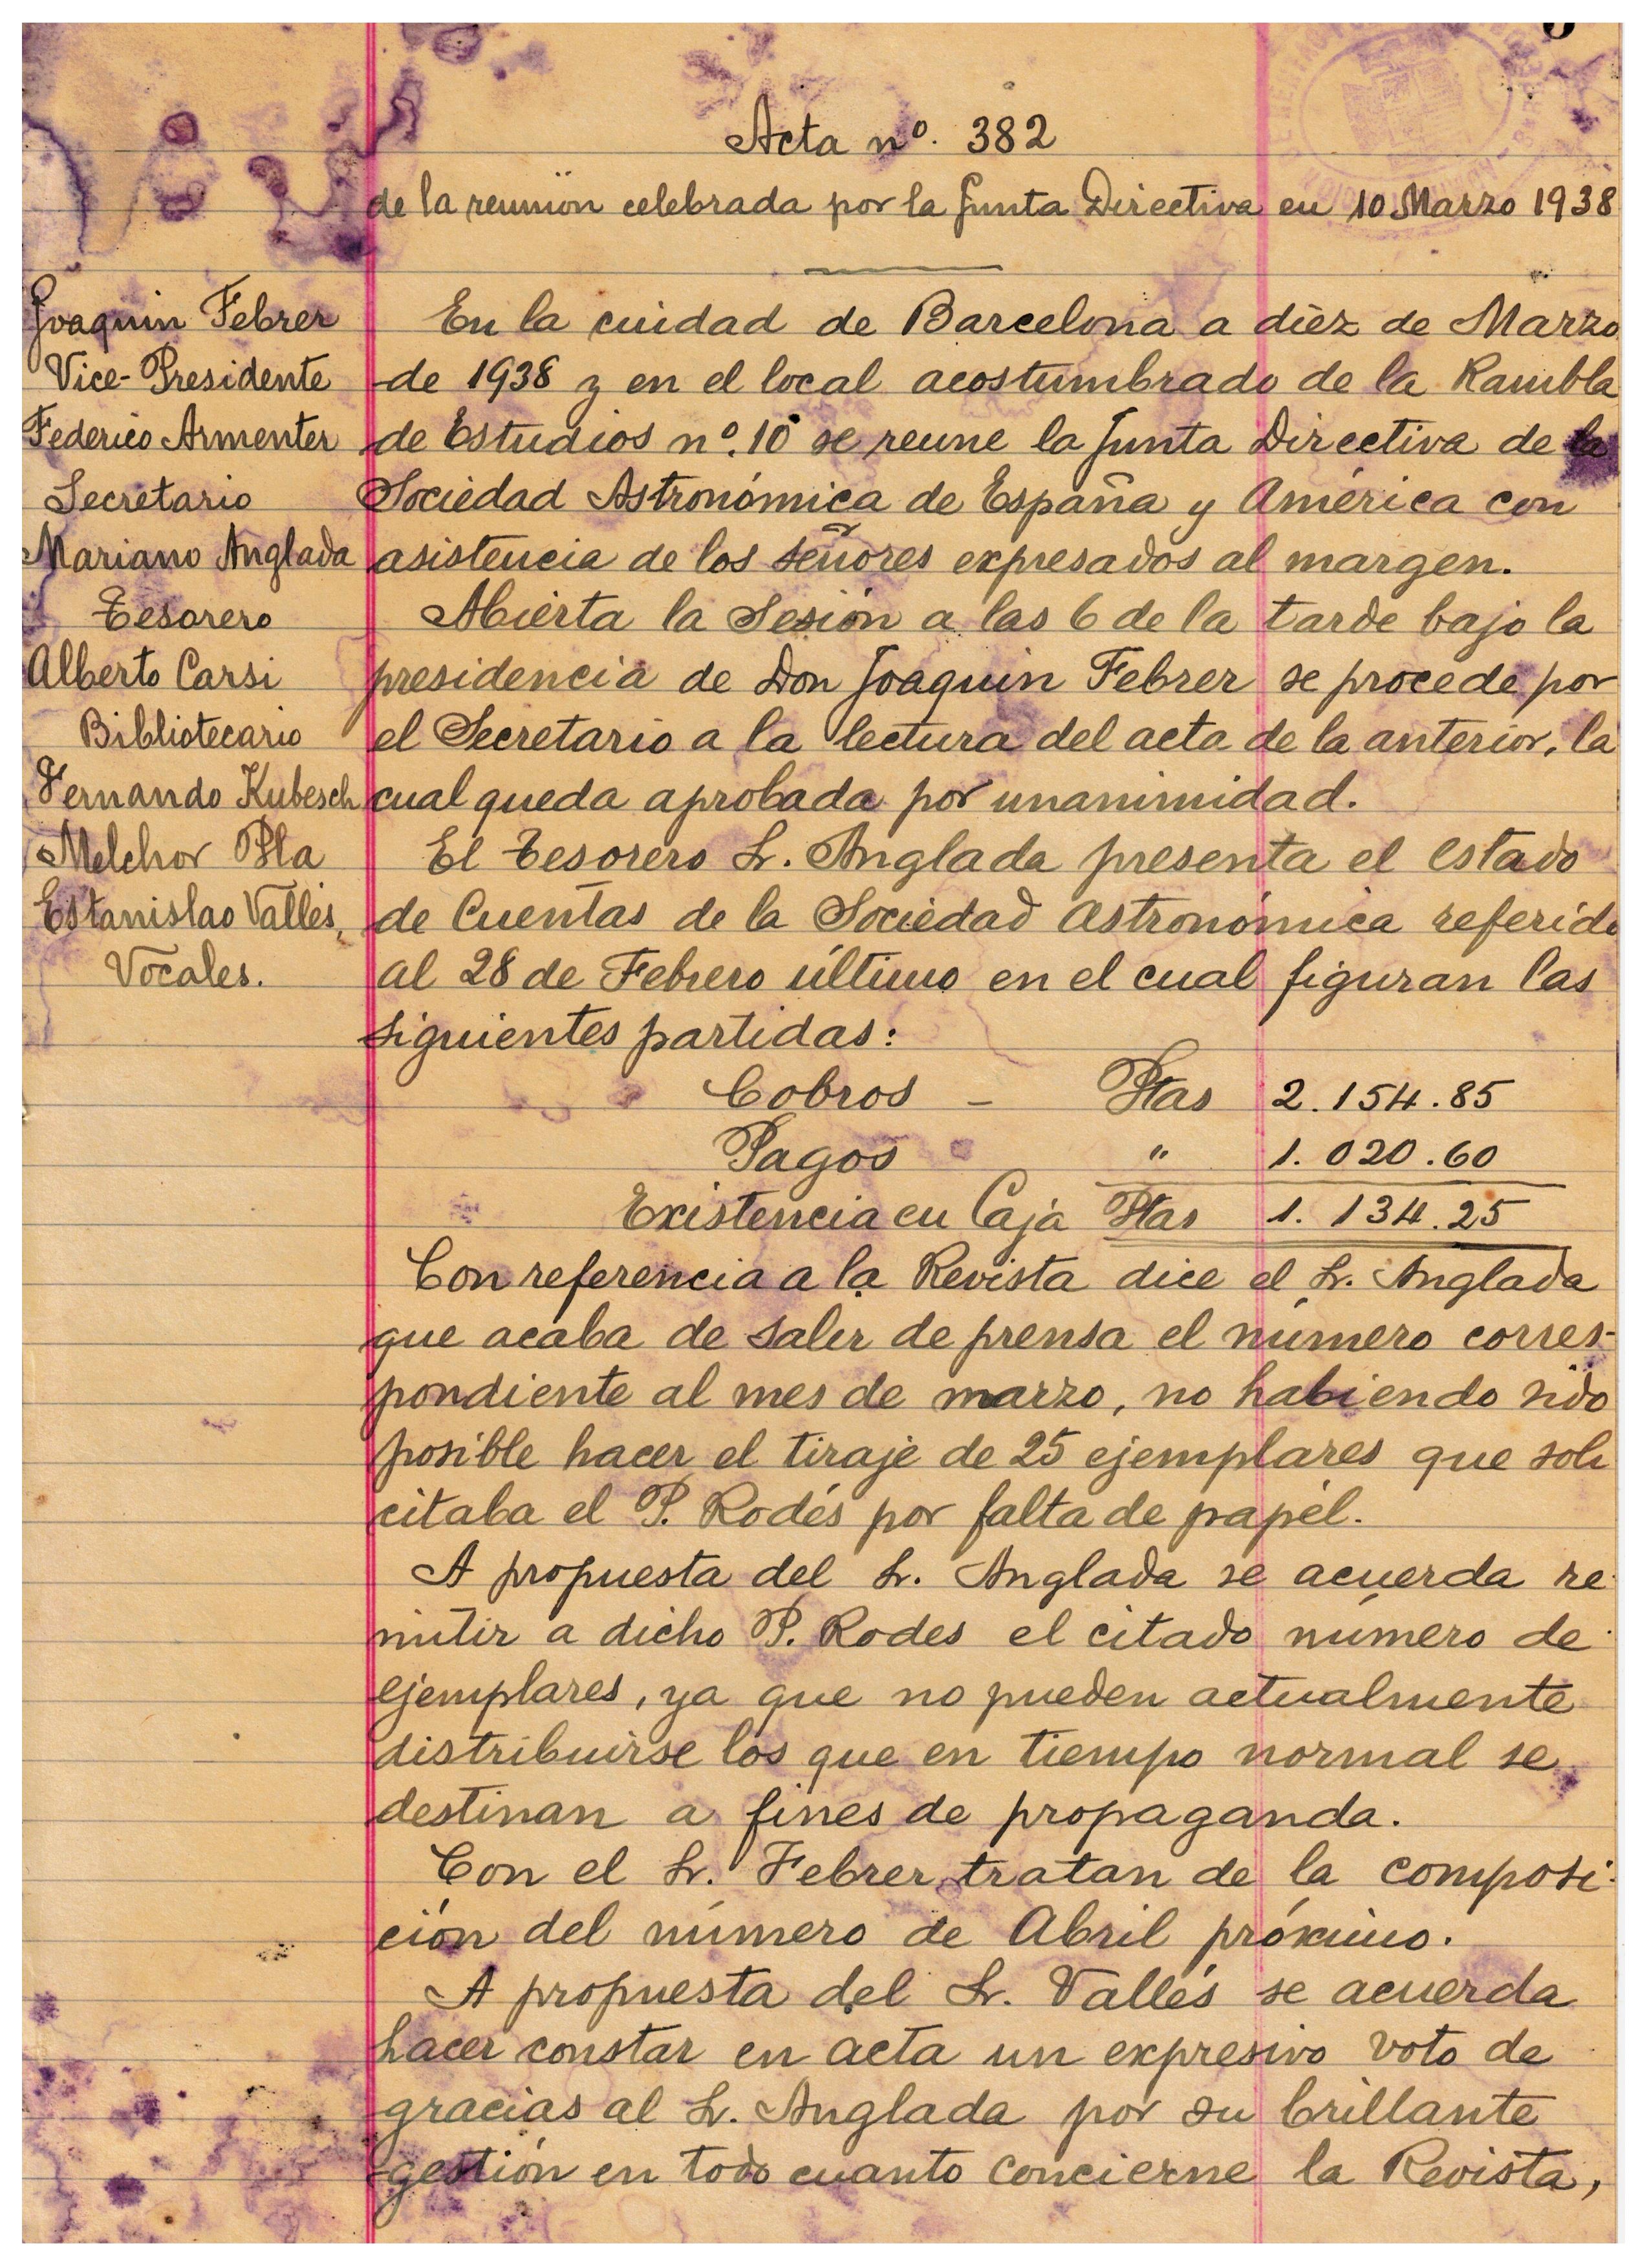 Acta nº. 382
de la reunión celebrada por la Junta Directiva en 10 Marzo 1938
Joaquin Febrer
Vice-Presidente
Federico Armenter
Secretario
Mariano Anglada
Tesorero
Alberto Carsi
Bibliotecario
Fernando Kubesch
Melchor Pla
Estanislao Vallés,
Vocales.
En la ciudad de Barcelona a diez de Marzo
de 1938 y en el local acostumbrado de la Rambla
de Estudios nº. 10 se reune la Junta Directiva de la
Sociedad Astronómica de España y América con
asistencia de los señores expresados al margen.
Abierta la Sesión a las 6 de la tarde bajo la
presidencia de Don Joaquin Febrer se procede por
el Secretario a la lectura del acta de la anterior, la
cual queda aprobada por unanimidad.
El Tesorero Sr. Anglada presenta el estado
de Cuentas de la Sociedad Astronómica referido
al 28 de Febrero último en el cual figuran las
siguientes partidas:
Cobros - Ptas 2.154.85
Pagos " 1.020.60
Existencia en Caja Ptas 1.134.25
Con referencia a la Revista dice el Sr. Anglada
que acaba de salir de prensa el número corres-
pondiente al mes de marzo, no habiendo sido
posible hacer el tiraje de 25 ejemplares que soli
citaba el P. Rodés por falta de papel.
A propuesta del Sr. Anglada se acuerda re-
mitir a dicho P. Rodes el citado número de
ejemplares, ya que no pueden actualmente
distribuirse los que en tiempo normal se
destinan a fines de propaganda.
Con el Sr. Febrer tratan de la composi-
ción del número de Abril próximo.
A propuesta del Sr. Vallés se acuerda
hacer constar en acta un expresivo voto de
gracias al Sr. Anglada por su brillante
gestión en todo cuanto concierne la Revista,